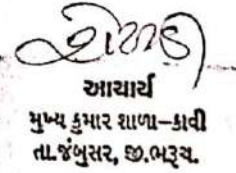 આચાર્ય
મુખ્ય કુમાર શાળા-કાવી
તા.જંબુસર, જી.ભરૂચ.